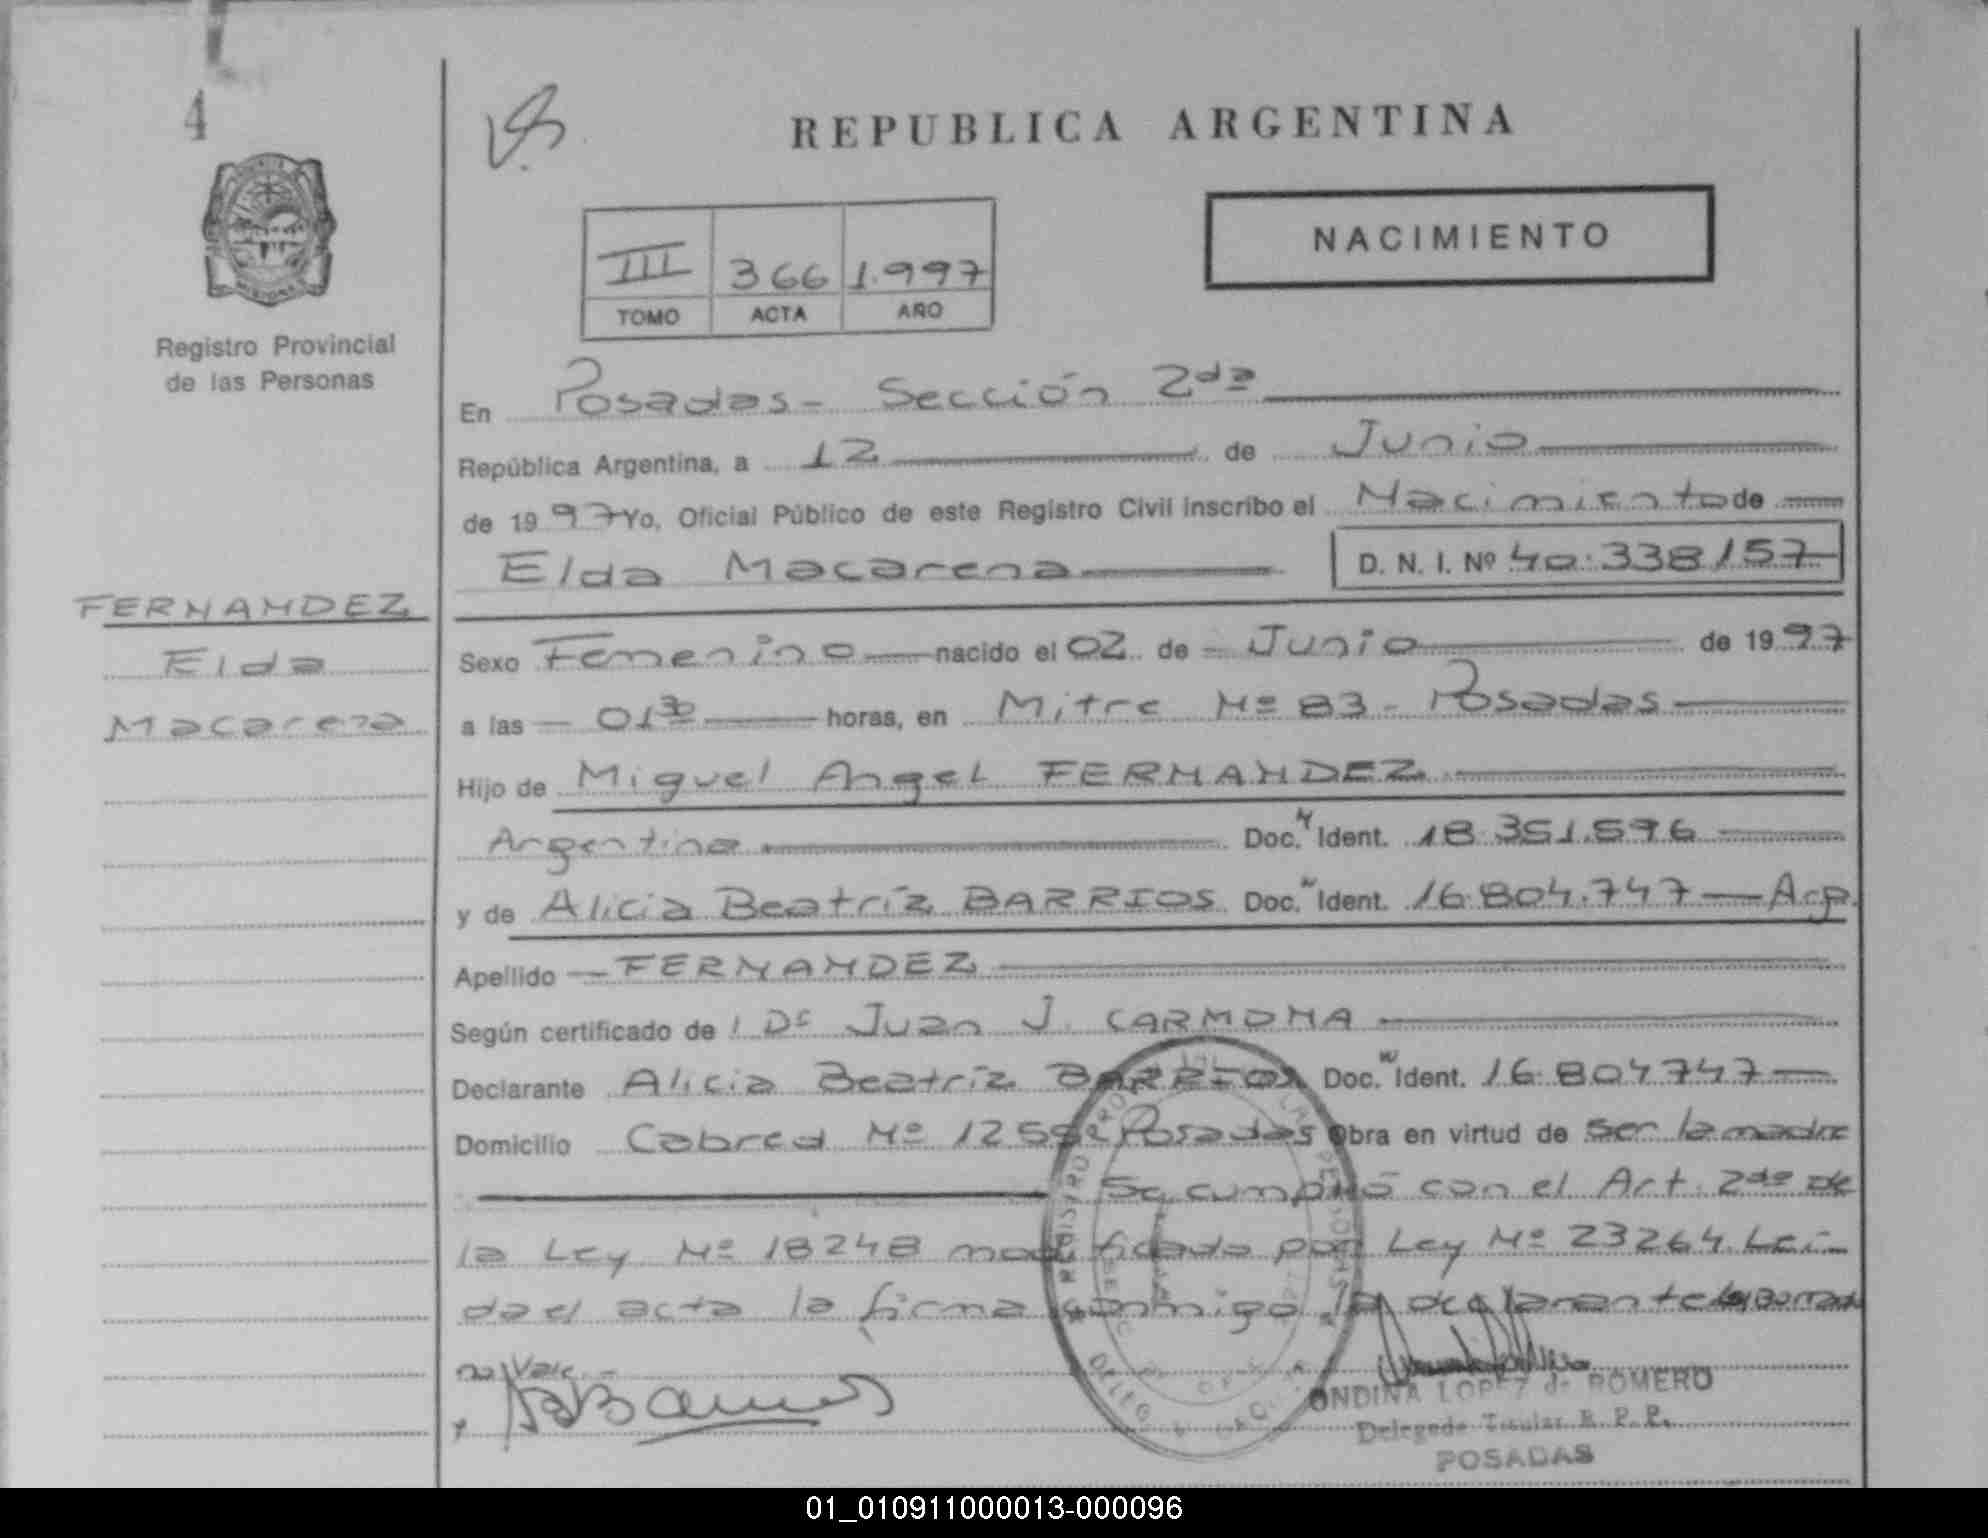 4
REPUBLICA ARGENTINA
NACIMIENTO
III 366 1.997
TOMO ACTA AÑO
Registro Provincial
de las Personas
En Posadas- Sección 2da
República Argentina, a 12 de Junio
de 1997 Yo, Oficial Público de este Registro Civil inscribo el Nacimiento de
Elda Macarena D. N. I. Nº 40.338157
FERNANDEZ
Elda
Macarena
Sexo Femenino nacido el 02 de Junio de 1997
a las 01 30 horas, en Mitre Nº 83 - Posadas
Hijo de Miguel Angel FERNANDEZ
Argentina Doc. N Ident. 18.351.596
y de Alicia Beatríz BARRIOS Doc. N Ident. 16.804.747 - Arg.
Apellido FERNANDEZ
Según certificado de Dr Juan J. CARMONA
Declarante Alicia Beatríz BARRIOS Doc. N Ident. 16.804747
Domicilio Cabred Nº Posadas Obra en virtud de ser la madre
Se cumplió con el Art. 2do de
la Ley Nº 18248 modificado por Ley Nº 23264. Leí-
da el acta la firma conmigo la declarante
no Vale.-
ONDINA LOPEZ de ROMERO
Delegada Titular R. P. P.
POSADAS
01_010911000013-000096